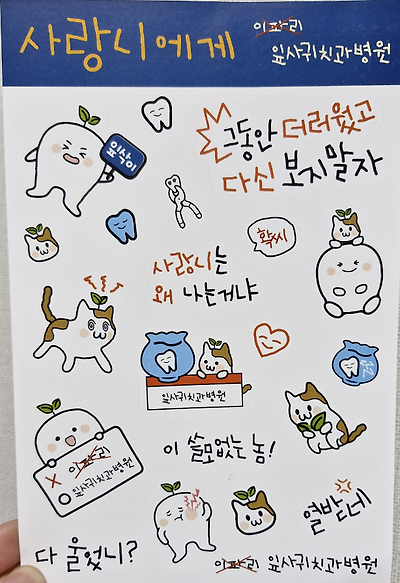 사랑니에게
이파리
잎사귀치과병원
그동안 더러웠고
다신 보지말자
잎삭이
확씨
사랑니는
왜 나는거냐
잎사귀치과병원
이파리
잎사귀치과병원
이 쓸모없는 놈!
열받네
다 울었니?
이파리 잎사귀치과병원